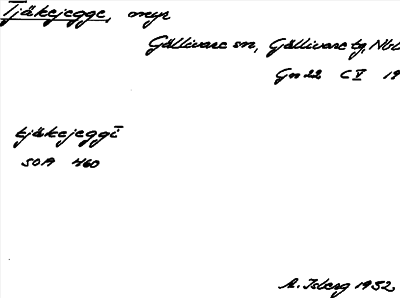 Tjäkejegge, myr
Gällivare sn, Gällivare tg, Nbt
Gn 22 C V 19
tjäkejeggī
SOA 460
A. Isberg 1932